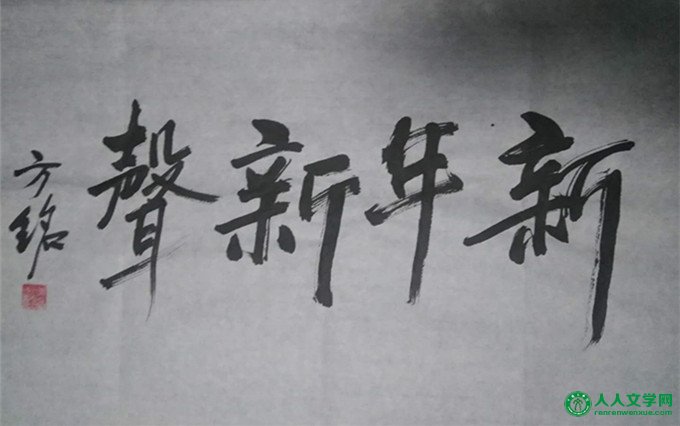 新年新聲
方銘
人人文学网
renrenwenxue.com